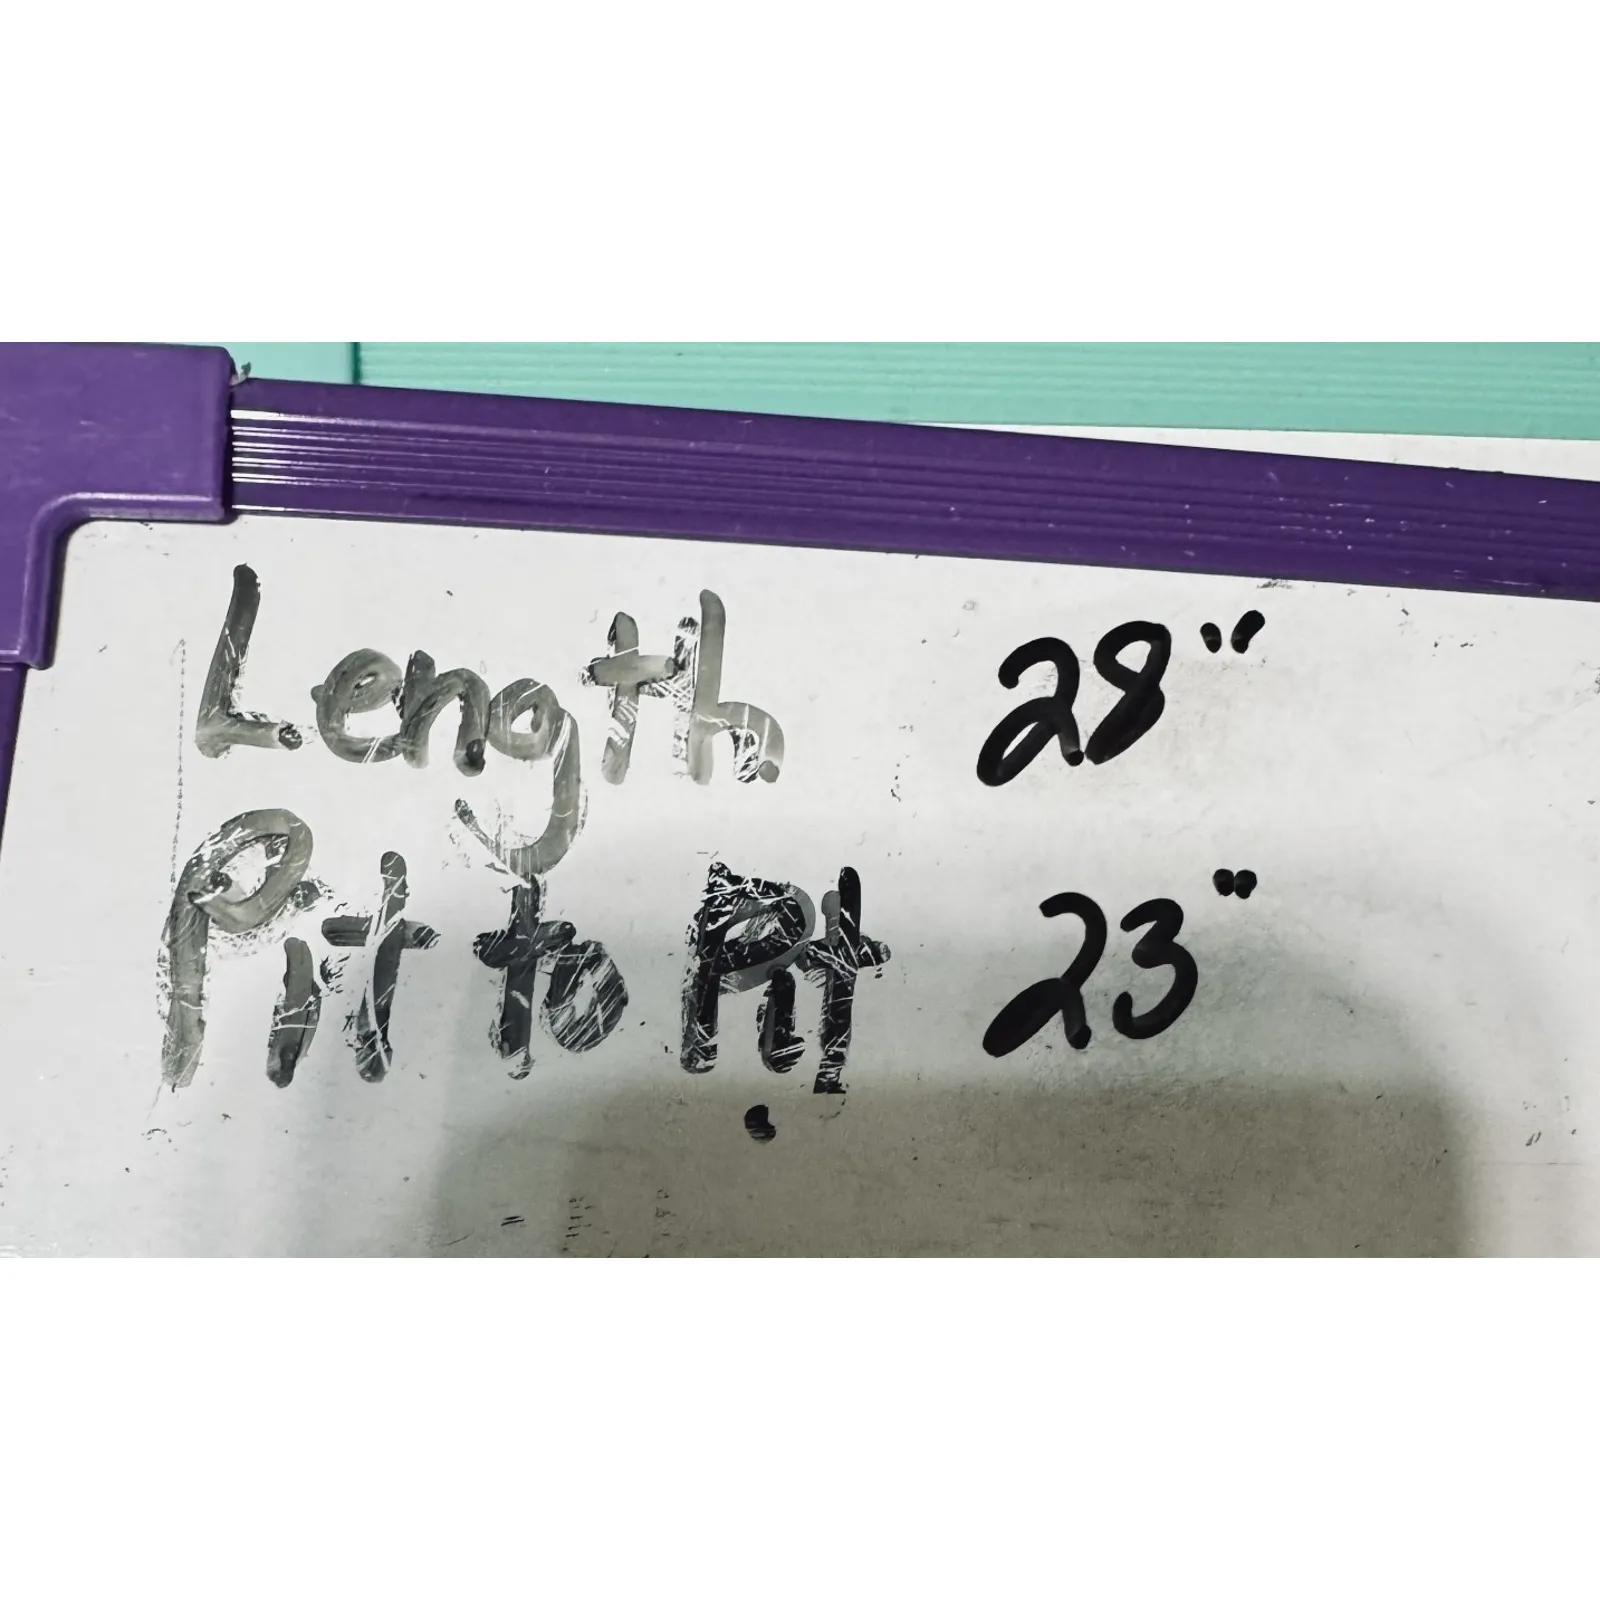 Length 28"
Pit to Pit 23"